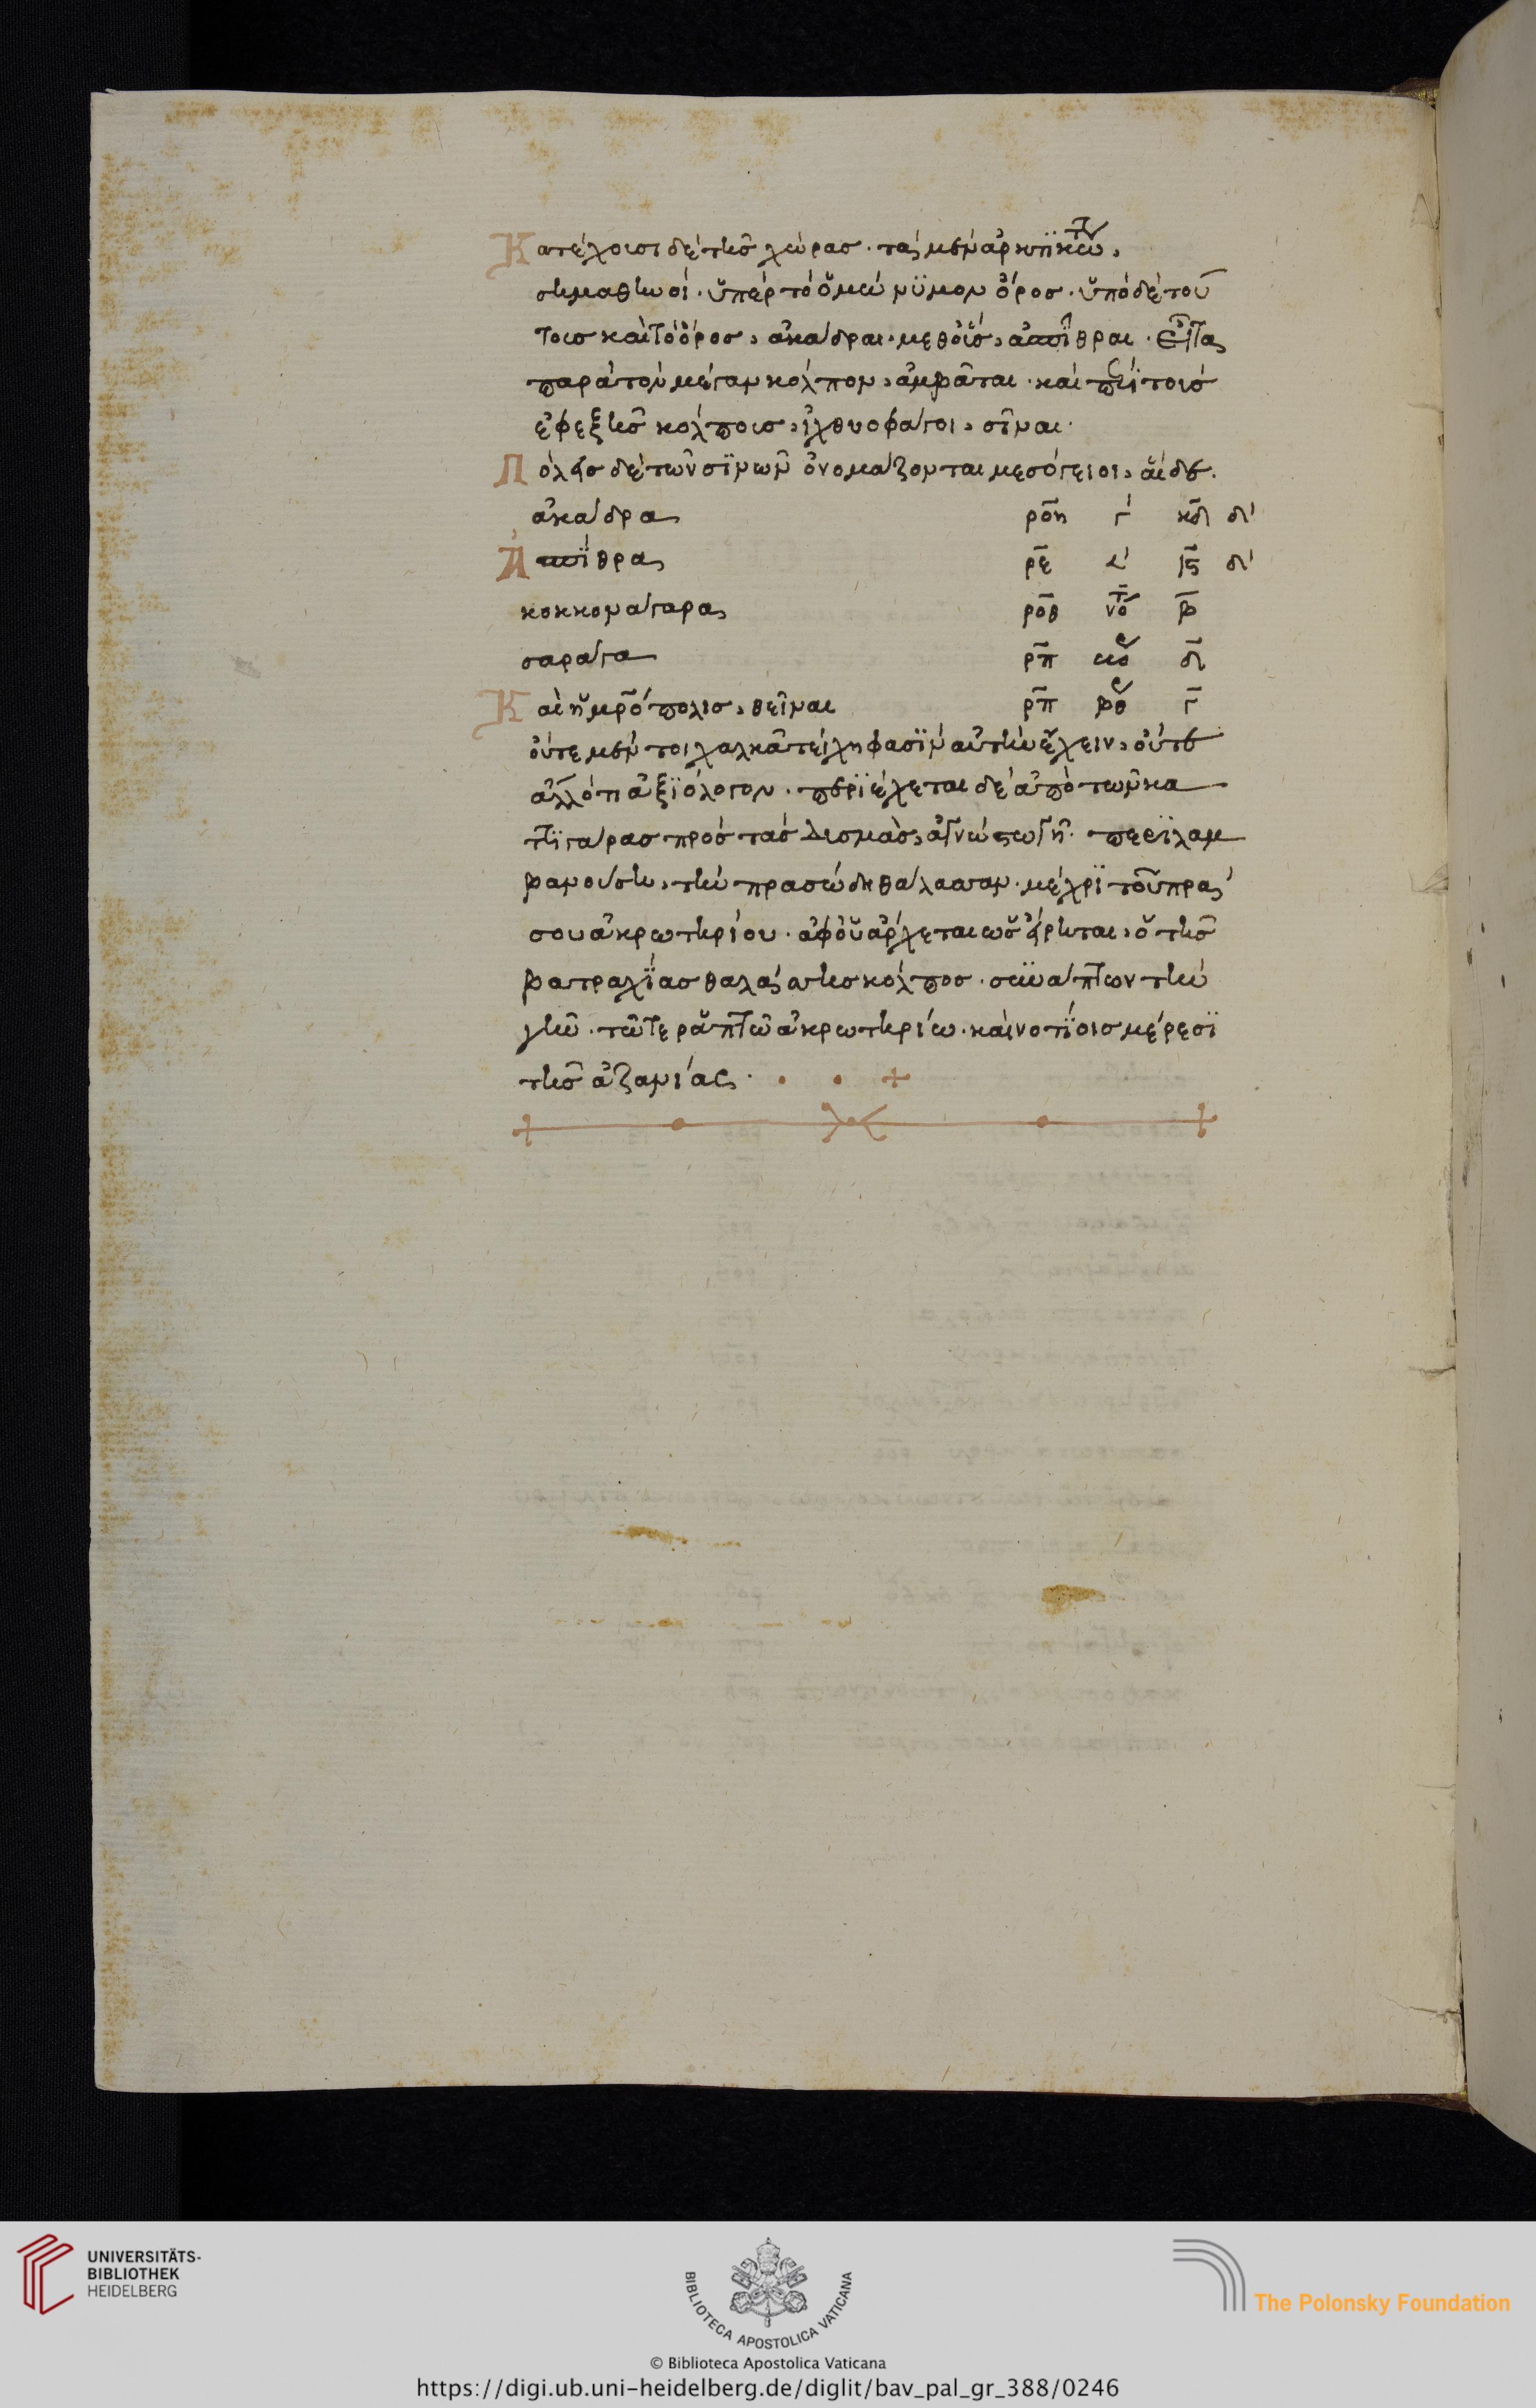 Κατέχουσι δὲ τῆς χώρας· τὰς μὲν ἀρκτικωτ,
σημαθηνοί· ὑπὲρ τὸ ὁμώνυμον ὄρος· ὑπὸ δὲ τού
τους καὶ τὸ ὄρος, ἀκάδραι· μεθ' οὓς, ἀσπίθραι· εἶτα
παρὰ τὸν μέγαν κόλπον, ἀμβάται· καὶ περὶ τοὺς
ἐφεξῆς κόλπους, ἰχθυοφάγοι, σῖναι·
Πόλεις δὲ τῶν σϊνῶν ὀνομάζονται μεσόγειοι, αἵδε·
ἀκάδρα ροη γ κδ δ'
Ἀσπίθρα ρε 𐅵 ις δ'
κοκκονάγαρα ροθ νο β
σαράγα ρπ νο δ
Καὶ ἡ μρόπολις, θεῖναι ρπ νο γ
οὔτε μέντοι χαλκᾶ τείχη φασὶν αὐτὴν ἔχειν, οὔτε
ἀλλό τι ἀξϊόλογον· περϊέχεται δὲ ἀπὸ τῶν κα
τϊγάρας πρὸς τὰς δυσμὰς, ἀγνώστω γῆ· περϊλαμ
βανούση, τὴν πρασώδη θάλασσαν· μέχρϊ τοῦ πρά
σου ἀκρωτηρίου· ἀφ' οὗ ἄρχεται ὡς εἴρηται, ὁ τῆς
βατραχΐας θαλάσσης κόλπος· συνάπτων τὴν
γῆν· τῶ τε ράπτω ἀκρωτηρίω· καὶ νοτίοις μέρεσϊ
τῆς ἀζανίας·
UNIVERSITÄTS-
BIBLIOTHEK
HEIDELBERG
BIBLIOTECA APOSTOLICA VATICANA
The Polonsky Foundation
© Biblioteca Apostolica Vaticana
https://digi.ub.uni-heidelberg.de/diglit/bav_pal_gr_388/0246